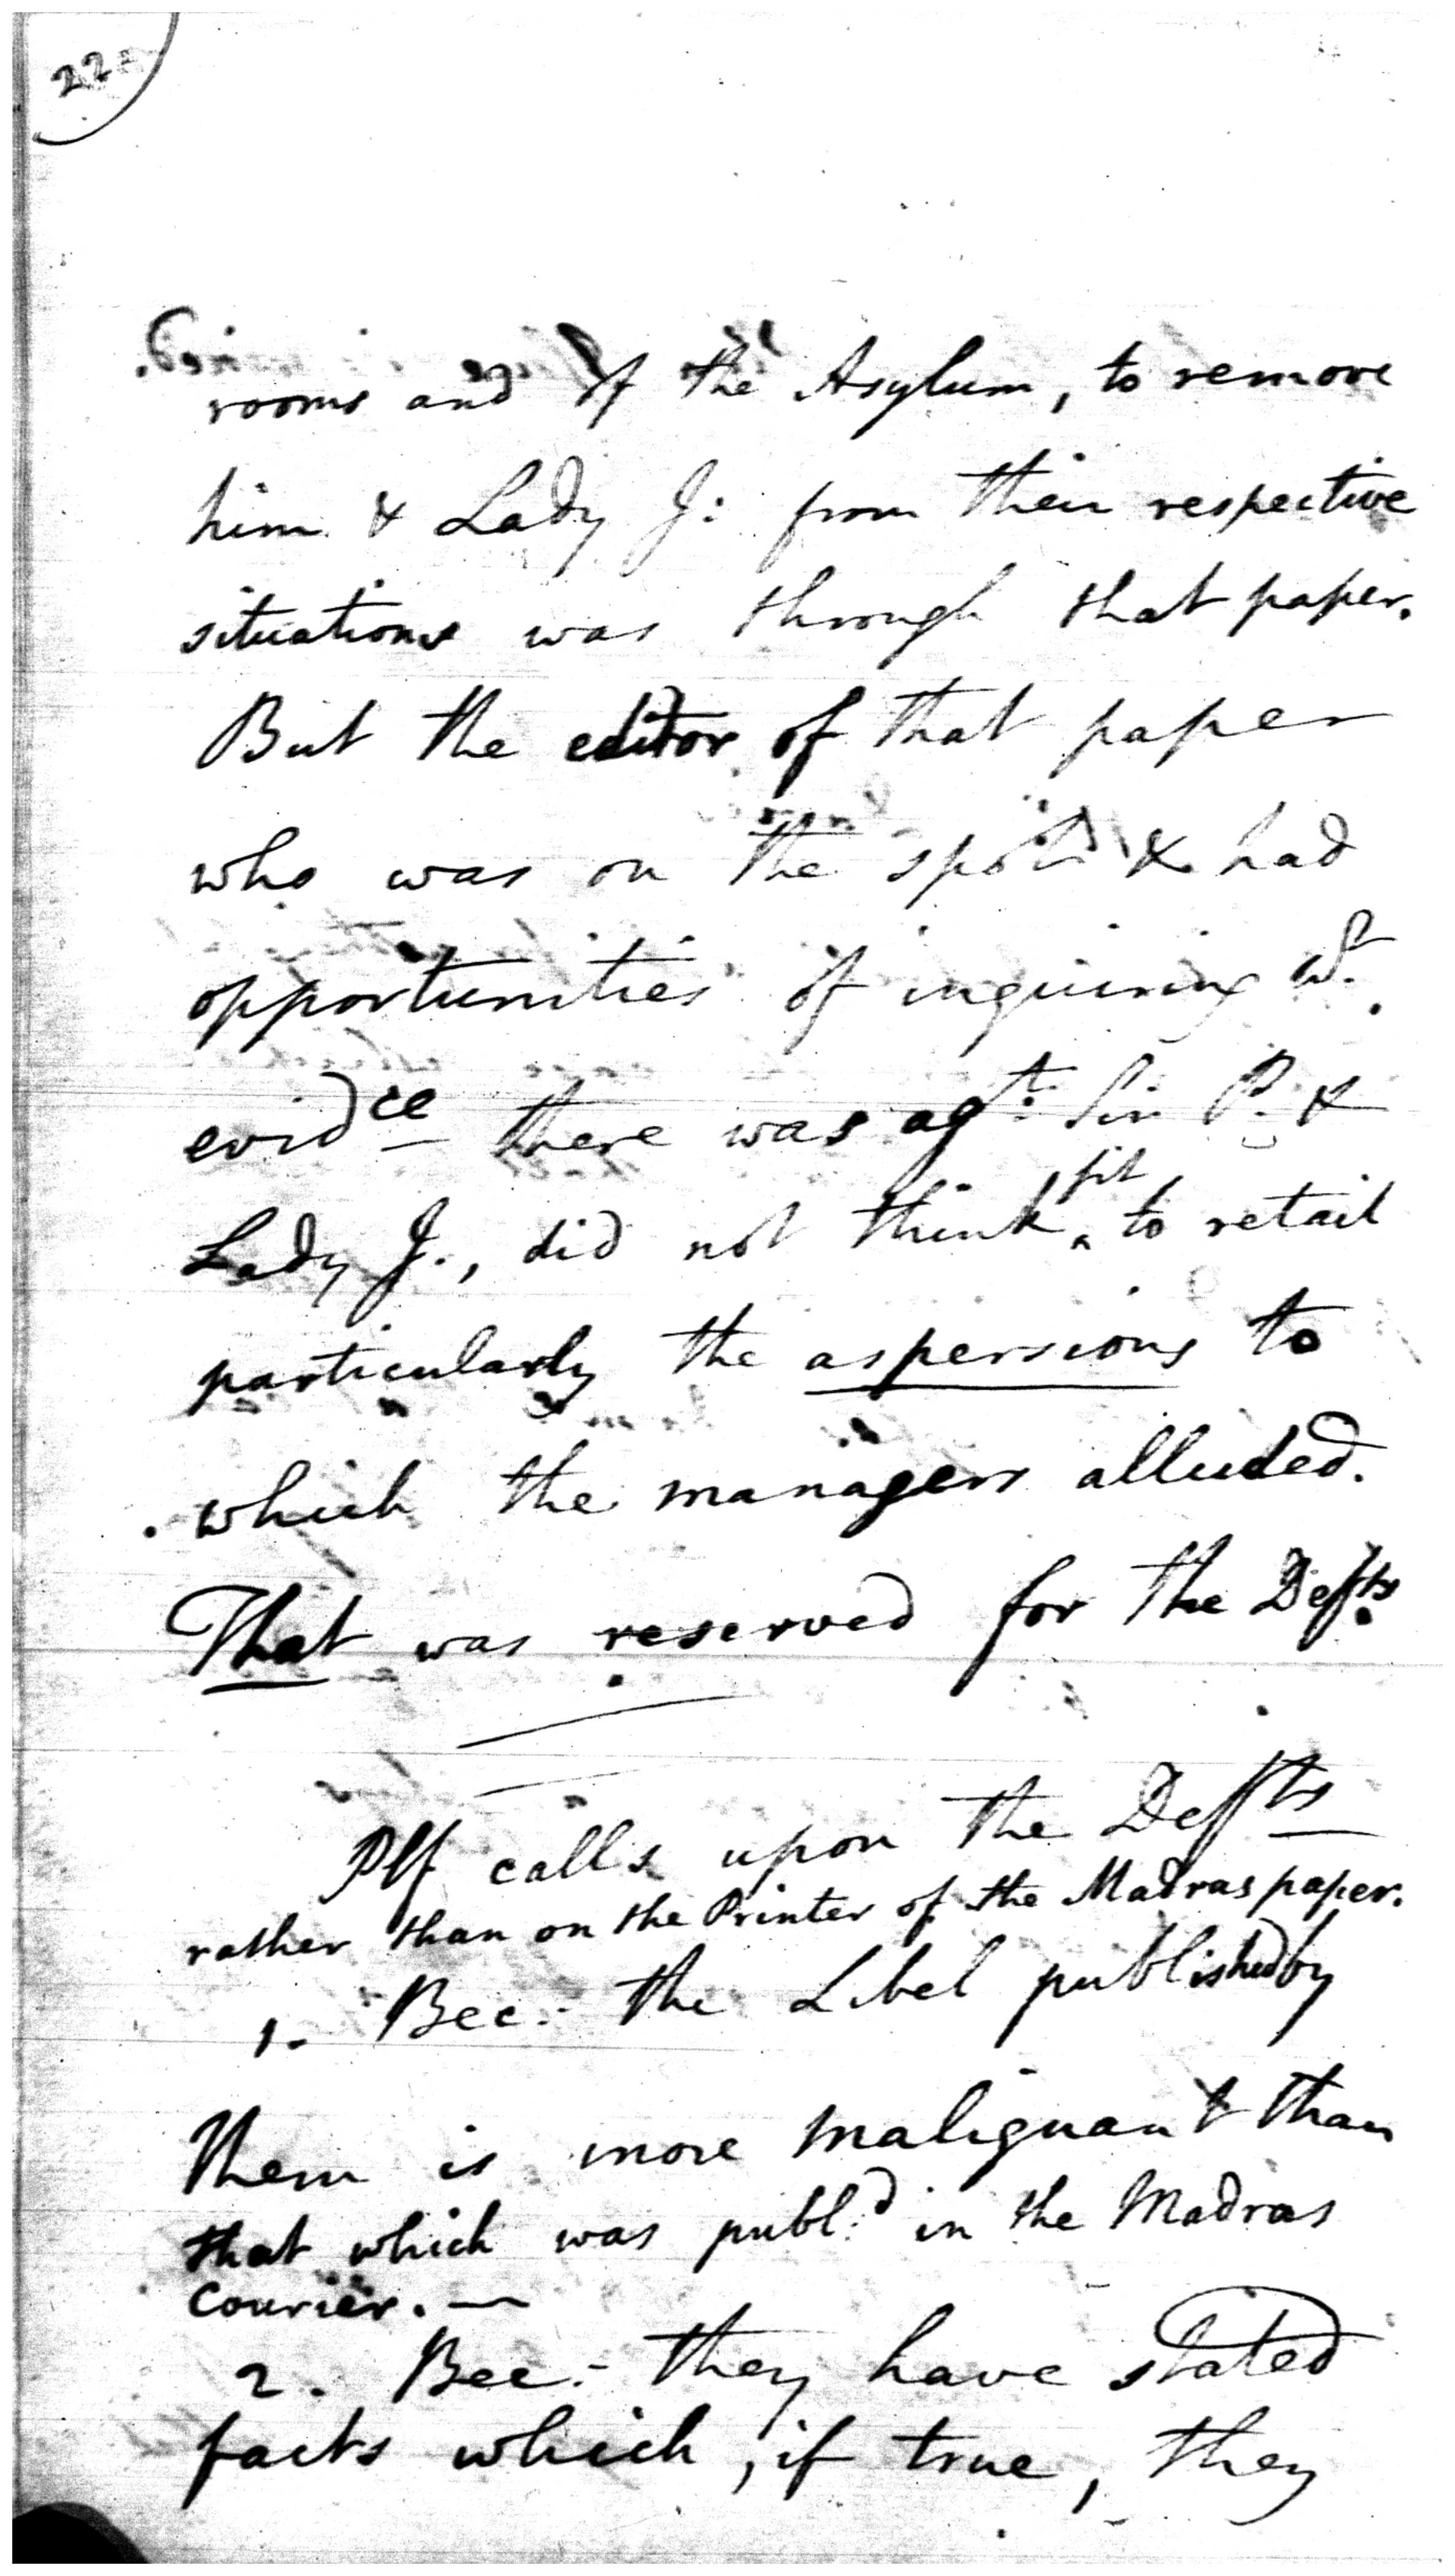 22
rooms and of the Asylum, to remove
him & Lady J: from their respective
situations was through that paper.
But the editor of that paper
who was on the spot & had
opportunities of inquiring wt.
evidce there was agt. Sir P. &
Lady J., did not think fit to retail
particularly the aspersions to
which the managers alluded.
That was reserved for the Defts.
Plf calls upon the Defts
rather than on the Printer of the Madras paper.
1. Bec: the Libel published by
them is more malignant than
that which was publ:d in the Madras
Courier. —
2. Bec: they have stated
facts which, if true, they